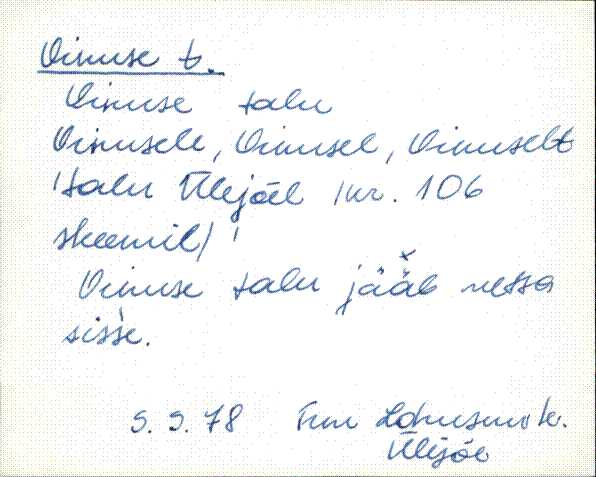 Oinuse t.
Oinuse talu
Oinusele, Oinusel, Oinuselt
'talu Ülejõel /nr. 106
skeemil/'
Oinuse talu jääb metsa
sisse.
5. 9. 78
Ülejõe